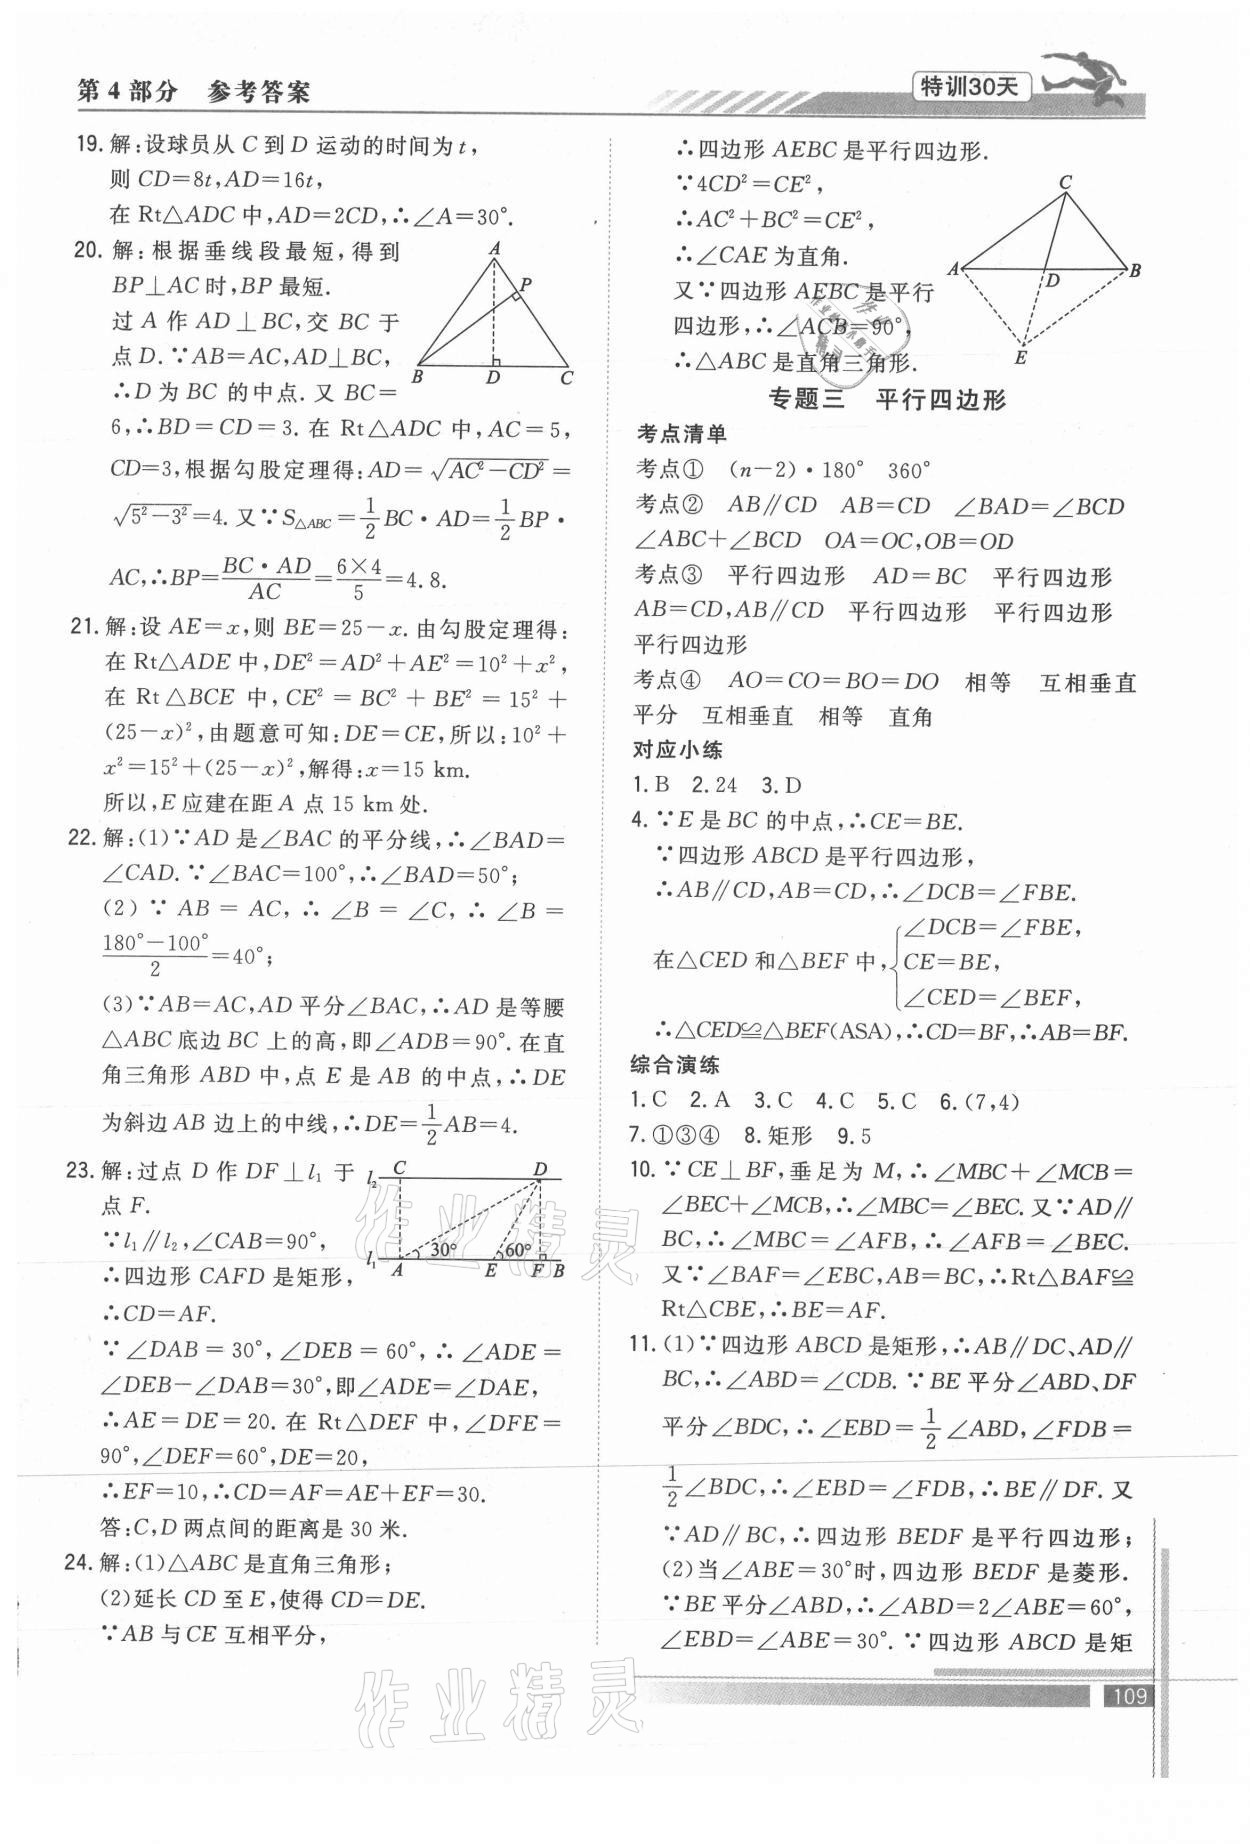 第4部分 参考答案
特训30天
19. 解:设球员从 C 到 D 运动的时间为 t,
则 CD=8t,AD=16t,
在 Rt△ADC 中,AD=2CD,∴∠A=30°.
20. 解:根据垂线段最短,得到
BP⊥AC 时,BP 最短.
过 A 作 AD⊥BC,交 BC 于
点 D.∵AB=AC,AD⊥BC,
∴D 为 BC 的中点.又 BC=
6,∴BD=CD=3.在 Rt△ADC 中,AC=5,
CD=3,根据勾股定理得:AD=√(AC²-CD²)=
√(5²-3²)=4.又∵S△ABC=1/2 BC·AD=1/2 BP·
AC,∴BP=BC·AD/AC=6×4/5=4.8.
A
P
B
D
C
21. 解:设 AE=x,则 BE=25-x.由勾股定理得:
在 Rt△ADE 中,DE²=AD²+AE²=10²+x²,
在 Rt△BCE 中,CE²=BC²+BE²=15²+
(25-x)²,由题意可知:DE=CE,所以:10²+
x²=15²+(25-x)²,解得:x=15 km.
所以,E 应建在距 A 点 15 km 处.
22. 解:(1)∵AD 是∠BAC 的平分线,∴∠BAD=
∠CAD.∵∠BAC=100°,∴∠BAD=50°;
(2)∵AB=AC,∴∠B=∠C,∴∠B=
(180°-100°)/2=40°;
(3)∵AB=AC,AD 平分∠BAC,∴AD 是等腰
△ABC 底边 BC 上的高,即∠ADB=90°.在直
角三角形 ABD 中,点 E 是 AB 的中点,∴DE
为斜边 AB 边上的中线,∴DE=1/2 AB=4.
23. 解:过点 D 作 DF⊥l₁ 于
点 F.
∵l₁∥l₂,∠CAB=90°,
∴四边形 CAFD 是矩形,
∴CD=AF.
∵∠DAB=30°,∠DEB=60°,∴∠ADE=
∠DEB-∠DAB=30°,即∠ADE=∠DAE,
∴AE=DE=20.在 Rt△DEF 中,∠DFE=
90°,∠DEF=60°,DE=20,
∴EF=10,∴CD=AF=AE+EF=30.
答:C,D 两点间的距离是 30 米.
l₂ C D
30° 60°
l₁ A E F B
24. 解:(1)△ABC 是直角三角形;
(2)延长 CD 至 E,使得 CD=DE.
∵AB 与 CE 互相平分,
∴四边形 AEBC 是平行四边形.
∵4CD²=CE²,
∴AC²+BC²=CE²,
∴∠CAE 为直角.
又∵四边形 AEBC 是平行
四边形,∴∠ACB=90°,
∴△ABC 是直角三角形.
C
A
D
B
E
专题三 平行四边形
考点清单
考点① (n-2)·180° 360°
考点② AB∥CD AB=CD ∠BAD=∠BCD
∠ABC+∠BCD OA=OC,OB=OD
考点③ 平行四边形 AD=BC 平行四边形
AB=CD,AB∥CD 平行四边形 平行四边形
平行四边形
考点④ AO=CO=BO=DO 相等 互相垂直
平分 互相垂直 相等 直角
对应小练
1. B 2. 24 3. D
4. ∵E 是 BC 的中点,∴CE=BE.
∵四边形 ABCD 是平行四边形,
∴AB∥CD,AB=CD,∴∠DCB=∠FBE.
∠DCB=∠FBE,
在△CED 和△BEF 中,{CE=BE,
∠CED=∠BEF,
∴△CED≌△BEF(ASA),∴CD=BF,∴AB=BF.
综合演练
1. C 2. A 3. C 4. C 5. C 6. (7,4)
7. ①③④ 8. 矩形 9. 5
10. ∵CE⊥BF,垂足为 M,∴∠MBC+∠MCB=
∠BEC+∠MCB,∴∠MBC=∠BEC.又∵AD∥
BC,∴∠MBC=∠AFB,∴∠AFB=∠BEC.
又∵∠BAF=∠EBC,AB=BC,∴Rt△BAF≌
Rt△CBE,∴BE=AF.
11. (1)∵四边形 ABCD 是矩形,∴AB∥DC、AD∥
BC,∴∠ABD=∠CDB.∵BE 平分∠ABD、DF
平分∠BDC,∴∠EBD=1/2∠ABD,∠FDB=
1/2∠BDC,∴∠EBD=∠FDB,∴BE∥DF.又
∵AD∥BC,∴四边形 BEDF 是平行四边形;
(2)当∠ABE=30°时,四边形 BEDF 是菱形.
∵BE 平分∠ABD,∴∠ABD=2∠ABE=60°,
∠EBD=∠ABE=30°.∵四边形 ABCD 是矩
作业精灵
作业精灵
109